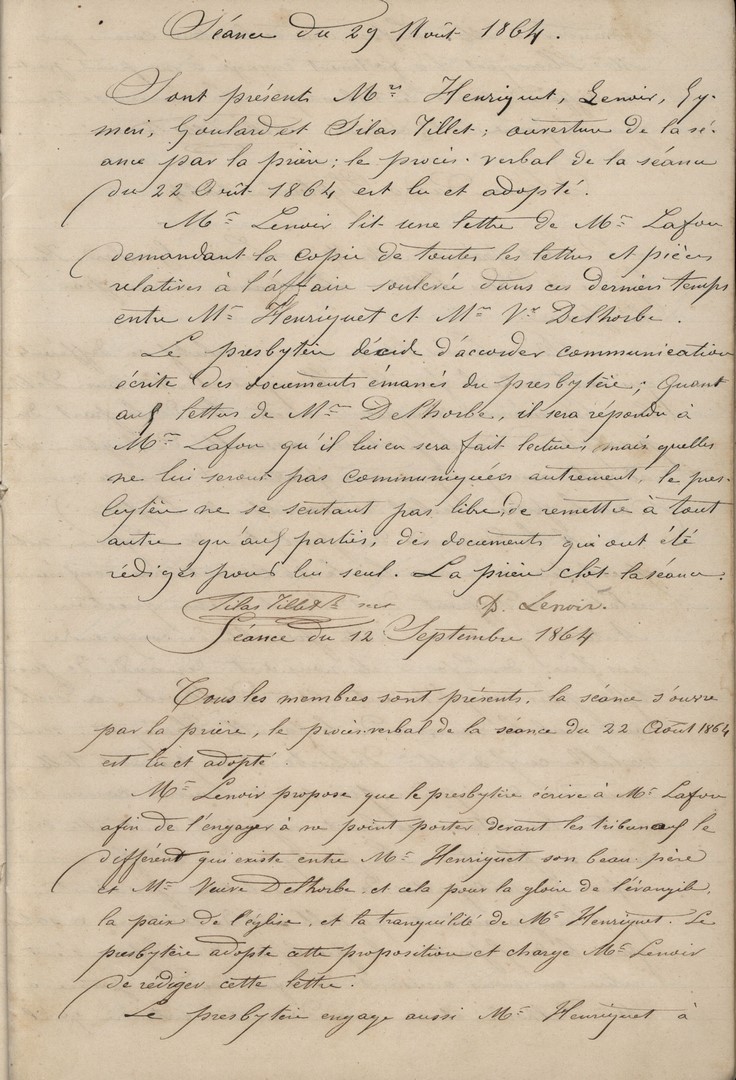 Séance du 29 Août 1864.
Sont présents M.rs Henriquet, Lenoir, Ey-
meri, Goulard et Silas Tillet; ouverture de la sé-
ance par la prière; le procès-verbal de la séance
du 22 Août 1864 est lu et adopté.
M.r Lenoir lit une lettre de M.r Lafon
demandant la copie de toutes les lettres et pièces
relatives à l'affaire soulevée dans ces derniers temps
entre M.r Henriquet et M.me V.ve Delhorbe.
Le presbytère décide d'accorder communication
écrite des documents émanés du presbytère; Quant
aux lettres de M.me Delhorbe, il sera répondu à
M.r Lafon qu'il lui en sera fait lecture, mais quelles
ne lui seront pas communiquées autrement, le pres-
bytère ne se sentant pas libre de remettre à tout
autre qu'aux parties, des documents qui ont été
rédigés pour lui seul. La prière clôt la séance.
Silas Tillet D. Lenoir.
Séance du 12 Septembre 1864
Tous les membres sont présents, la séance s'ouvre
par la prière, le procès-verbal de la séance du 22 Août 1864
est lu et adopté.
M.r Lenoir propose que le presbytère écrive à M.r Lafon
afin de l'engager à ne point porter devant les tribunaux le
différent qui existe entre M.r Henriquet son beau-père
et M.me Veuve Delhorbe et cela pour la gloire de l'évangile,
la paix de l'église, et la tranquilité de M.r Henriquet. Le
presbytère adopte cette proposition et charge M.r Lenoir
de rédiger cette lettre.
Le presbytère engage aussi M.r Henriquet à